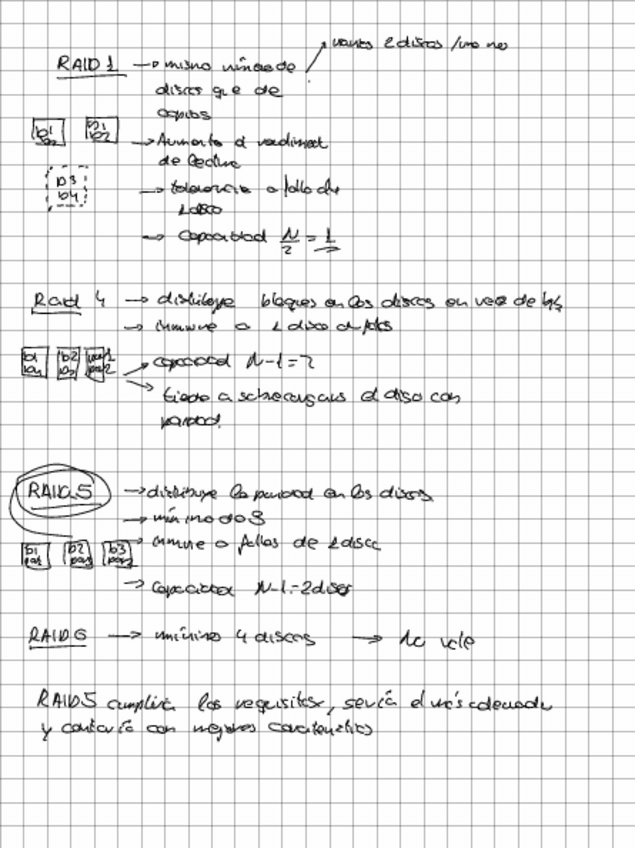 usamos 2 discos / uno no
RAID 1 → mismo número de
discos que de
copias
b1 b1
b2 b2
→ Aumenta el rendimiento
de lectura
b3
b4
→ tolerancia a fallo de
1 disco
→ Capacidad N/2 = 1
Raid 4 → distribuye bloques en los discos en vez de bits
→ inmune a 1 disco de fallos
b1 b2 par1
→ capacidad N-1=2
→ tiende a sobrecargarse el disco con
paridad.
RAID 5 → distribuye la paridad en los discos
→ mínimo de 3
→ inmune a fallos de 1 disco
b1 b2 b3
par par par
→ Capacidad N-1=2 discos
RAID 6 → mínimo 4 discos → No vale
RAID5 cumpliría los requisitos, sería el más adecuado
y contaría con mejores características